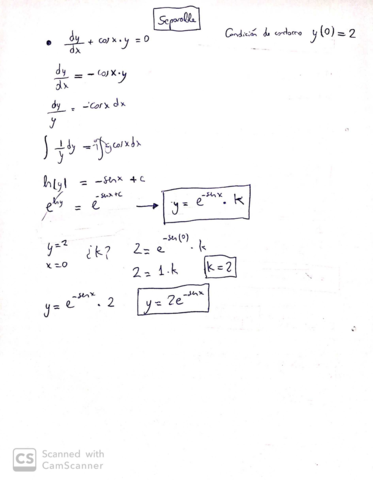 Separable
• dy/dx + cosx·y = 0 Condición de contorno y(0) = 2
dy/dx = -cosx·y
dy/y = -cosx dx
∫ 1/y dy = -∫ cosx dx
ln|y| = -senx + c
e^lny = e^-senx+c → y = e^-senx · k
y=2 ¿k? 2 = e^-sen(0) · k
x=0 2 = 1·k k=2
y = e^-senx · 2 y = 2e^-senx
CS Scanned with
CamScanner